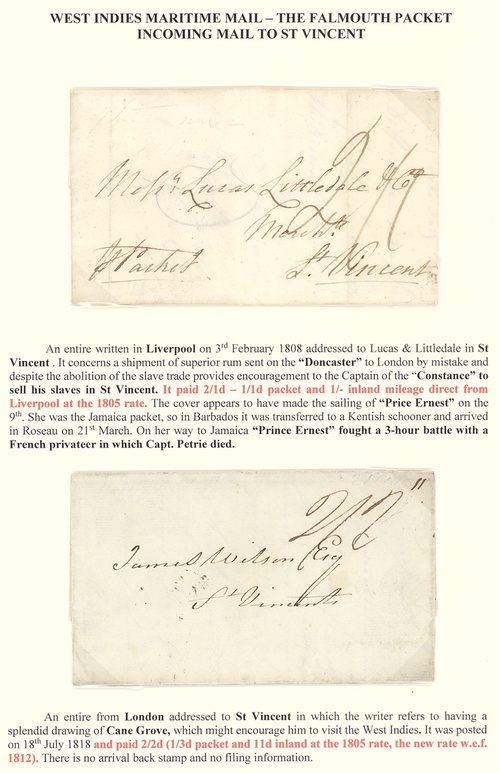 WEST INDIES MARITIME MAIL – THE FALMOUTH PACKET
INCOMING MAIL TO ST VINCENT
Messrs Lucas Littledale & Co
Merchts
St. Vincent
Packet
An entire written in Liverpool on 3rd February 1808 addressed to Lucas & Littledale in St
Vincent . It concerns a shipment of superior rum sent on the “Doncaster” to London by mistake and
despite the abolition of the slave trade provides encouragement to the Captain of the “Constance” to
sell his slaves in St Vincent. It paid 2/1d – 1/1d packet and 1/- inland mileage direct from
Liverpool at the 1805 rate. The cover appears to have made the sailing of “Price Ernest” on the
9th. She was the Jamaica packet, so in Barbados it was transferred to a Kentish schooner and arrived
in Roseau on 21st March. On her way to Jamaica “Prince Ernest” fought a 3-hour battle with a
French privateer in which Capt. Petrie died.
2/2
James Wilson Esq
St Vincents
An entire from London addressed to St Vincent in which the writer refers to having a
splendid drawing of Cane Grove, which might encourage him to visit the West Indies. It was posted
on 18th July 1818 and paid 2/2d (1/3d packet and 11d inland at the 1805 rate, the new rate w.e.f.
1812). There is no arrival back stamp and no filing information.